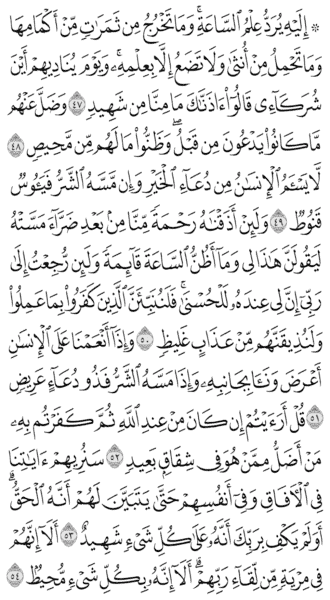 ۞ إِلَيْهِ يُرَدُّ عِلْمُ ٱلسَّاعَةِ ۚ وَمَا تَخْرُجُ مِن ثَمَرَٰتٍ مِّنْ أَكْمَامِهَا
وَمَا تَحْمِلُ مِنْ أُنثَىٰ وَلَا تَضَعُ إِلَّا بِعِلْمِهِۦ ۚ وَيَوْمَ يُنَادِيهِمْ أَيْنَ
شُرَكَآءِى قَالُوٓا۟ ءَاذَنَّـٰكَ مَا مِنَّا مِن شَهِيدٍ ٤٧ وَضَلَّ عَنْهُم
مَّا كَانُوا۟ يَدْعُونَ مِن قَبْلُ ۖ وَظَنُّوا۟ مَا لَهُم مِّن مَّحِيصٍ ٤٨
لَّا يَسْـَٔمُ ٱلْإِنسَـٰنُ مِن دُعَآءِ ٱلْخَيْرِ وَإِن مَّسَّهُ ٱلشَّرُّ فَيَـُٔوسٌ
قَنُوطٌ ٤٩ وَلَئِنْ أَذَقْنَـٰهُ رَحْمَةً مِّنَّا مِنۢ بَعْدِ ضَرَّآءَ مَسَّتْهُ
لَيَقُولَنَّ هَـٰذَا لِى وَمَآ أَظُنُّ ٱلسَّاعَةَ قَآئِمَةً وَلَئِن رُّجِعْتُ إِلَىٰ
رَبِّىٓ إِنَّ لِى عِندَهُۥ لَلْحُسْنَىٰ ۚ فَلَنُنَبِّئَنَّ ٱلَّذِينَ كَفَرُوا۟ بِمَا عَمِلُوا۟
وَلَنُذِيقَنَّهُم مِّنْ عَذَابٍ غَلِيظٍ ٥٠ وَإِذَآ أَنْعَمْنَا عَلَى ٱلْإِنسَـٰنِ
أَعْرَضَ وَنَـَٔا بِجَانِبِهِۦ وَإِذَا مَسَّهُ ٱلشَّرُّ فَذُو دُعَآءٍ عَرِيضٍ
٥١ قُلْ أَرَءَيْتُمْ إِن كَانَ مِنْ عِندِ ٱللَّهِ ثُمَّ كَفَرْتُم بِهِۦ
مَنْ أَضَلُّ مِمَّنْ هُوَ فِى شِقَاقٍۭ بَعِيدٍ ٥٢ سَنُرِيهِمْ ءَايَـٰتِنَا
فِى ٱلْـَٔافَاقِ وَفِىٓ أَنفُسِهِمْ حَتَّىٰ يَتَبَيَّنَ لَهُمْ أَنَّهُ ٱلْحَقُّ ۗ
أَوَلَمْ يَكْفِ بِرَبِّكَ أَنَّهُۥ عَلَىٰ كُلِّ شَىْءٍ شَهِيدٌ ٥٣ أَلَآ إِنَّهُمْ
فِى مِرْيَةٍ مِّن لِّقَآءِ رَبِّهِمْ ۗ أَلَآ إِنَّهُۥ بِكُلِّ شَىْءٍ مُّحِيطٌۢ ٥٤